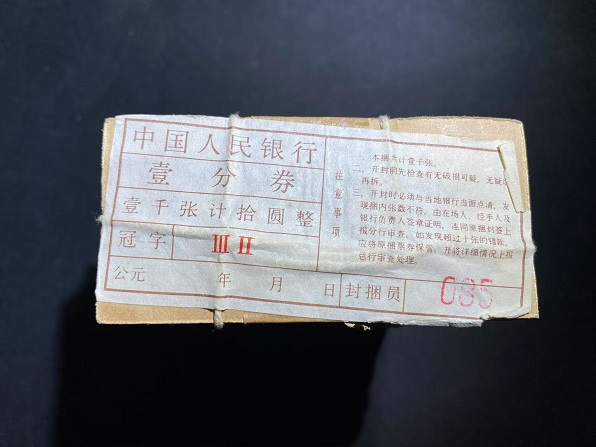 中国人民银行
壹分券
壹千张计拾圆整
冠字 III II
公元 年 月 日 封捆员 095
注意事项
一、本捆共计壹千张。
二、开封前先检查有无破损可疑，无疑后
再拆。
三、开封时必须与当地银行当面点清，发
现捆内张数不符，由在场人、经手人及
银行负责人签章证明，连同原捆封签上
报分行审查。如发现超过十张的错款，
应将原捆票券保管，并将详细情况上报
总行审查处理。